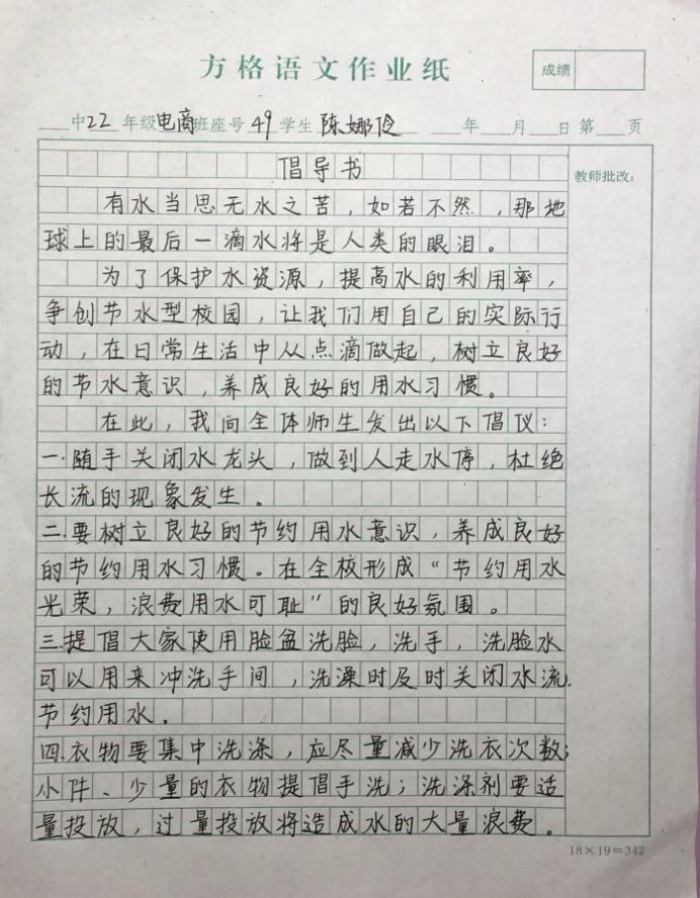 方格语文作业纸
成绩
中22年级电商班座号49学生陈娜伶 年 月 日第 页
教师批改：
倡导书
有水当思无水之苦，如若不然，那地
球上的最后一滴水将是人类的眼泪。
为了保护水资源，提高水的利用率，
争创节水型校园，让我们用自己的实际行
动，在日常生活中从点滴做起，树立良好
的节水意识，养成良好的用水习惯。
在此，我向全体师生发出以下倡仪：
一.随手关闭水龙头，做到人走水停，杜绝
长流的现象发生。
二.要树立良好的节约用水意识，养成良好
的节约用水习惯。在全校形成“节约用水
光荣，浪费用水可耻”的良好氛围。
三.提倡大家使用脸盆洗脸，洗手，洗脸水
可以用来冲洗手间，洗澡时及时关闭水流.
节约用水.
四.衣物要集中洗涤，应尽量减少洗衣次数；
小件、少量的衣物提倡手洗；洗涤剂要适
量投放，过量投放将造成水的大量浪费。
18×19=342